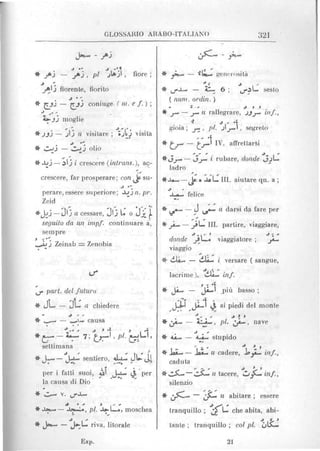 GLOSSARIO ARABO-ITALIANO 321
زهر - سجل
* زهر — زَهْر, pl. أَزْهَار, fiore;
زَاهِر fiorente, fiorito
* زوج — زَوْج coniuge (m. e f.);
زَوْجَة moglie
* زور — زَار u visitare; زِيَارَة visita
* زيت — زَيْت olio
* زيد — زَاد i crescere (intrans.), ac-
crescere, far prosperare; con على su-
perare, essere superiore; زَيْد n. pr.
Zeid
seguito da un impf. continuare a,
sempre
زَيْنَب Zeinab = Zenobia
س
سَ part. del futuro
* سأل — سَأَل a chiedere
* سبب — سَبَب causa
settimana
per i fatti suoi, في سبيل الله per
la causa di Dio
* ست v. سدس
* سجد — مَسْجِد, pl. مَسَاجِد, moschea
* سحل — سَاحِل riva, litorale
Esp.
سخى - سكن
generosità
* سدس — سِتّ 6; سَادِس sesto
(num. ordin.)
* سر — سَرّ u rallegrare, سُرُور inf.,
gioia; سِرّ, pl. أَسْرَار, segreto
* سرع — أَسْرَع IV. affrettarsi
* سرق — سَرَق i rubare, donde سَارِق
ladro
III. aiutare qn. a;
felice
a darsi da fare per
* سفر — سَافَر III. partire, viaggiare,
donde مُسَافِر viaggiatore; سَفَر
viaggio
* سفك — سَفَك i versare (sangue,
lacrime), سَفْك inf.
* سفل — أَسْفَل più basso;
ai piedi del monte
* سفن — سَفِينَة, pl. سُفُن, nave
* سفه — سَفِيه stupido
* سقط — سَقَط u cadere, سُقُوط inf.,
caduta
* سكت — سَكَت u tacere, سُكُوت inf.,
silenzio
* سكن — سَكَن u abitare; essere
tranquillo; سَاكِن che abita, abi-
tante; tranquillo; col pl. سُكَّان
21